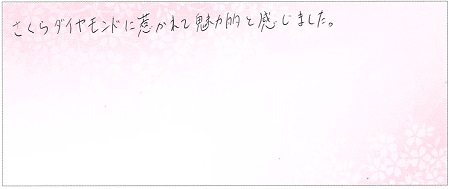 さくらダイヤモンドに惹かれて魅力的と感じました。